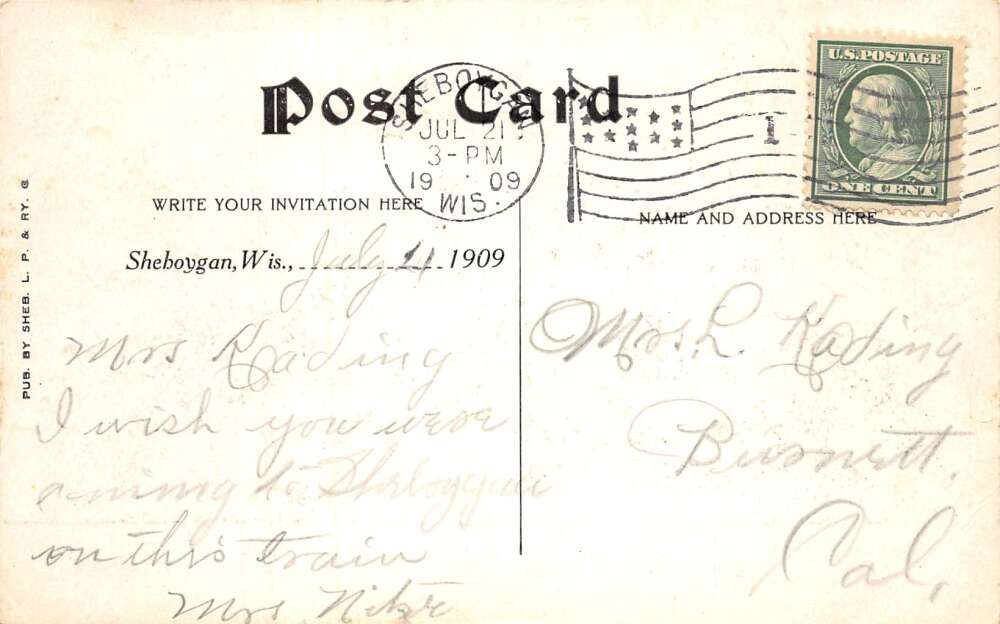 Post Card
SHEBOYGAN
JUL 21
3-PM
19 09
WIS.
1
U.S. POSTAGE
ONE CENT
WRITE YOUR INVITATION HERE
NAME AND ADDRESS HERE
Sheboygan, Wis., July 21 1909
Mrs Kading
I wish you were
coming to Sheboygan
on this train
Mrs
Mrs. L. Kading
Burnett.
Cal,
PUB. BY SHEB. L. P. & RY. ©